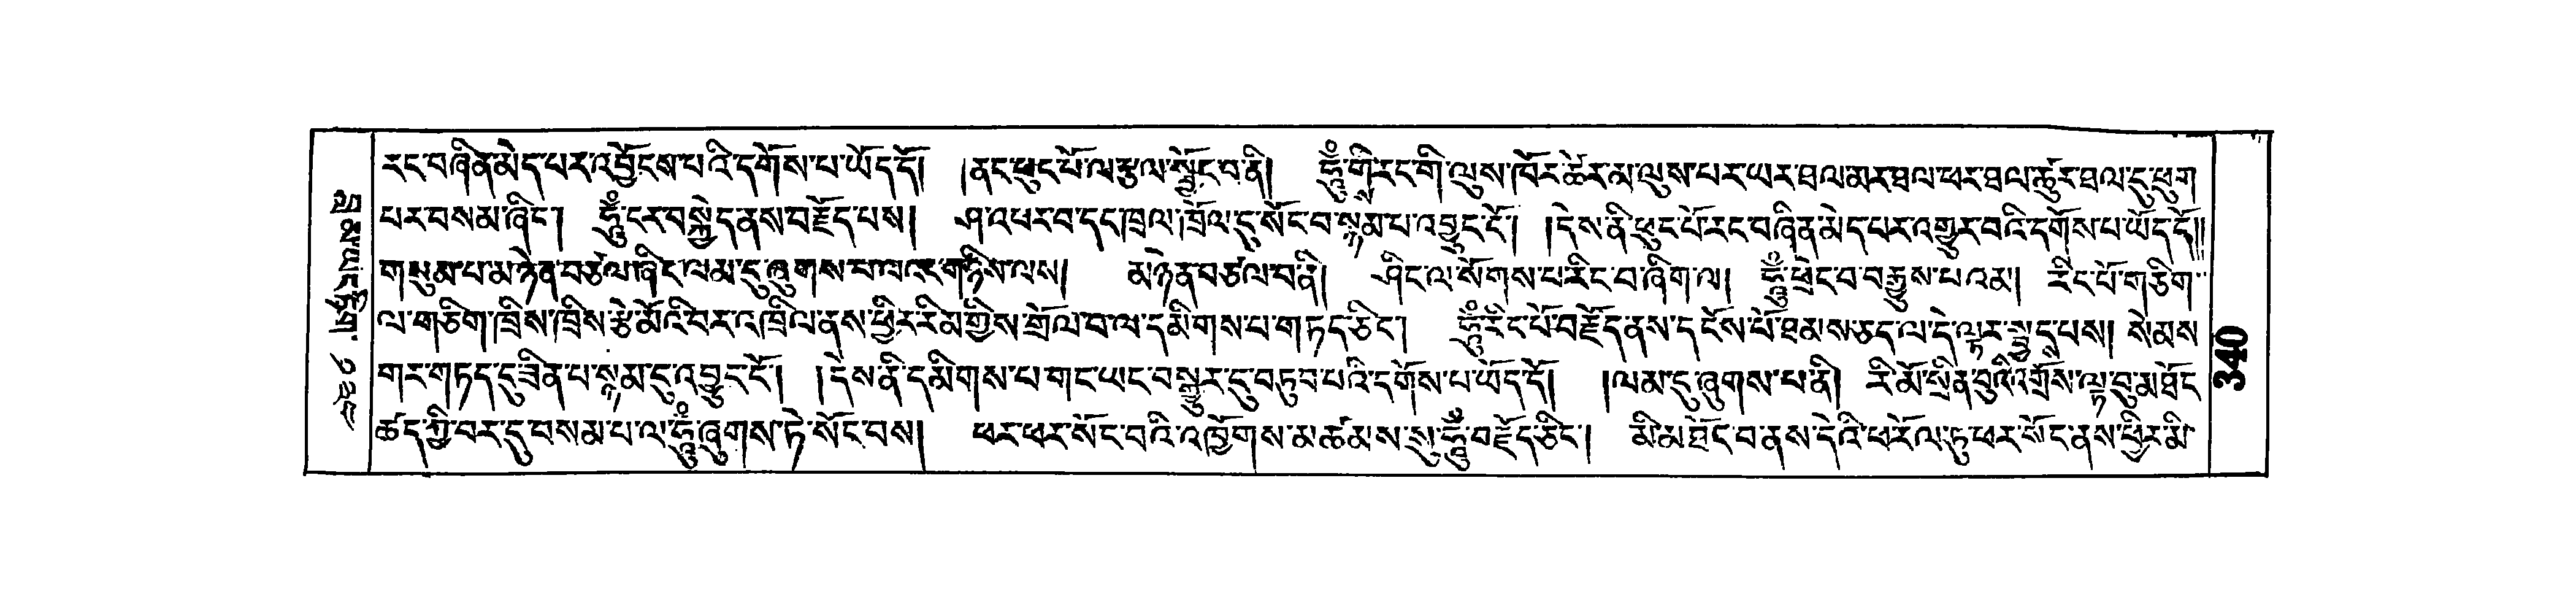 རང་བཞིན་མེད་པར་འབྱོངས་པའི་དགོས་པ་ཡོད་དོ། །ནང་ཕུང་པོ་ལ་རྩལ་སྦྱོང་བ་ནི། ཧཱུྃ་གིྲང་གི་ལུས་ཁོར་ཚེར་མ་ལུས་པར་ཡར་ཐལ་མར་ཐལ་ཕར་ཐལ་ཚུར་ཐལ་དུ་ཕུག
པར་བསམ་ཞིང་། ཧཱུྃ་ངར་བསྐྱེད་ནས་བརྗོད་པས། ཤ་འཕར་བ་དང་ཁྲལ་ཁྲོལ་དུ་སོང་བ་སྙམ་པ་འབྱུང་ངོ་། །དེས་ནི་ཕུང་པོ་རང་བཞིན་མེད་པར་འགྱུར་བའི་དགོས་པ་ཡོད་དོ༎
གསུམ་པ་མ་ཉེན་བཙལ་ཞིང་ལམ་དུ་ཞུགས་པ་ལའང་གཉིས་ལས། མ་ཉེན་བཙལ་བ་ནི། ཤིང་ལ་སོགས་པ་རིང་བ་ཞིག་ལ། ཧཱུྃ་ཕྲེང་བ་བརྒྱུས་པའམ། རིང་པོ་གཅིག
ལ་གཅིག་ཁྲིས་ཁྲིས་རྩེ་མོའི་བར་འཁྲིལ་ནས་ཕྱིར་རིམ་གྱིས་གྲོལ་བ་ལ་དམིགས་པ་གཏད་ཅིང་། ཧཱུྃ་རིང་པོ་བརྗོད་ནས་དངོས་པོ་ཐམས་ཅད་ལ་དེ་ལྟར་སྦྱད་པས། སེམས
གར་གཏད་དུ་ཟིན་པ་སྙམ་དུ་འབྱུང་ངོ་། །དེས་ནི་དམིགས་པ་གང་ཡང་བསྒྱུར་དུ་བཏུབ་པའི་དགོས་པ་ཡོད་དོ། །ལམ་དུ་ཞུགས་པ་ནི། རི་མོ་སྲིན་བུའི་འགྲོས་ལྟ་བུ་མཐོང
ཚད་ཀྱི་བར་དུ་བསམ་པ་ལ་ཧཱུྃ་ཞུགས་ཏེ་སོང་བས། ཕར་ཕར་སོང་བའི་འཁྱོགས་མ་ཚམས་སུ་ཧཱུྃ་བརྗོད་ཅིང་། མི་མཐོང་བ་ནས་དེའི་ཕ་རོལ་ཏུ་ཕར་སོང་ནས་ཕྱིར་མི